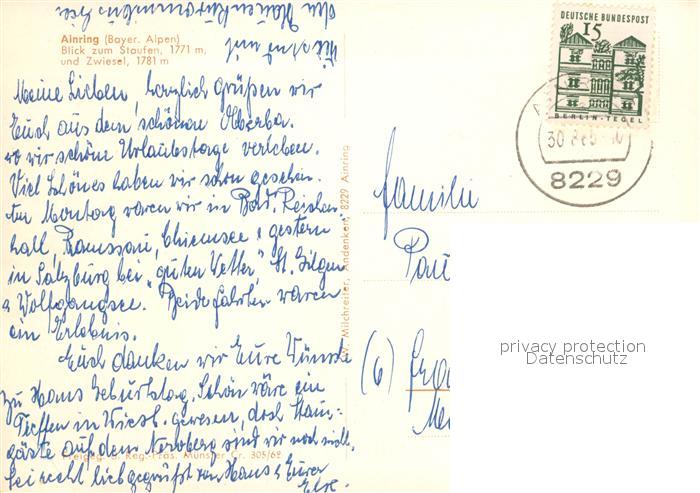 Ainring (Bayer. Alpen)
Blick zum Staufen, 1771 m,
und Zwiesel, 1781 m
Meine Lieben, herzlich grüßen wir
Euch aus dem schönen Oberba.
wo wir schöne Urlaubstage verleben.
Viel Schönes haben wir schon gesehen.
Am Montag waren wir in Bad. Reichen
hall, Ramssau, Chiemsee, gestern
in Salzburg bei "guten Wetter", St. Gilgen
u Wolfgangsee. Beide Fahrten waren
ein Erlebnis.
Euch danken wir Eure Wünsche
zu Hans Geburtstag. Schön wäre ein
Treffen in Wiesb. gewesen, doch
gäste auf dem Neroberg sind wir noch nicht.
Seid recht lieb gegrüßt von Hans u Eurer
Else.
Freigeg. d. Reg.-Präs. Münster Cr. 305/62
W. Milchreiter, Andenken, 8229 Ainring
DEUTSCHE BUNDESPOST
15
BERLIN-TEGEL
30
8229
Familie
Pau
(6)
privacy protection
Datenschutz